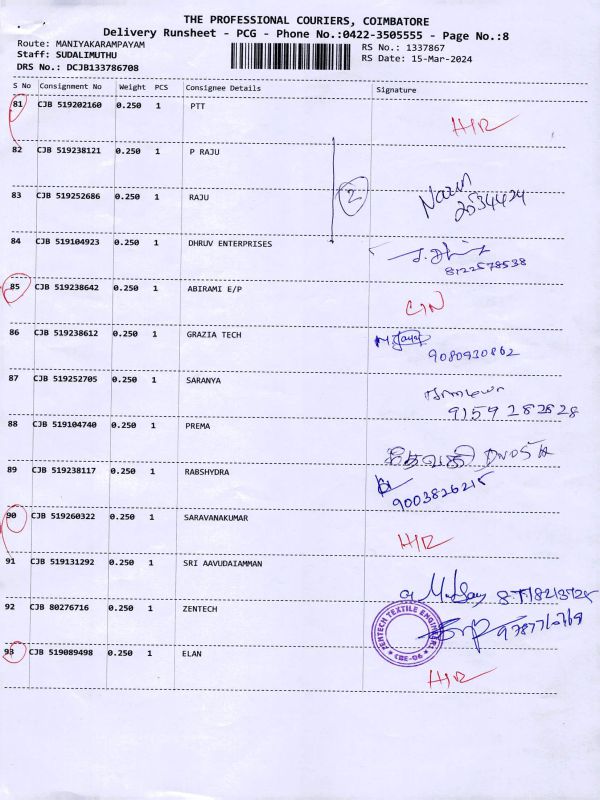 THE PROFESSIONAL COURIERS, COIMBATORE
Delivery Runsheet - PCG - Phone No.:0422-3505555 - Page No.:8
Route: MANIYAKARAMPAYAM
RS No.: 1337867
Staff: SUDALIMUTHU
RS Date: 15-Mar-2024
DRS No.: DCJB133786708
S No Consignment No Weight PCS Consignee Details Signature
81 CJB 519202160 0.250 1 PTT
82 CJB 519238121 0.250 1 P RAJU
2
83 CJB 519252686 0.250 1 RAJU
84 CJB 519104923 0.250 1 DHRUV ENTERPRISES
8122578538
85 CJB 519238642 0.250 1 ABIRAMI E/P
86 CJB 519238612 0.250 1 GRAZIA TECH
9080930862
87 CJB 519252705 0.250 1 SARANYA
9159282828
88 CJB 519104740 0.250 1 PREMA
89 CJB 519238117 0.250 1 RABSHYDRA
9003826215
90 CJB 519260322 0.250 1 SARAVANAKUMAR
91 CJB 519131292 0.250 1 SRI AAVUDAIAMMAN
92 CJB 80276716 0.250 1 ZENTECH
93 CJB 519089498 0.250 1 ELAN